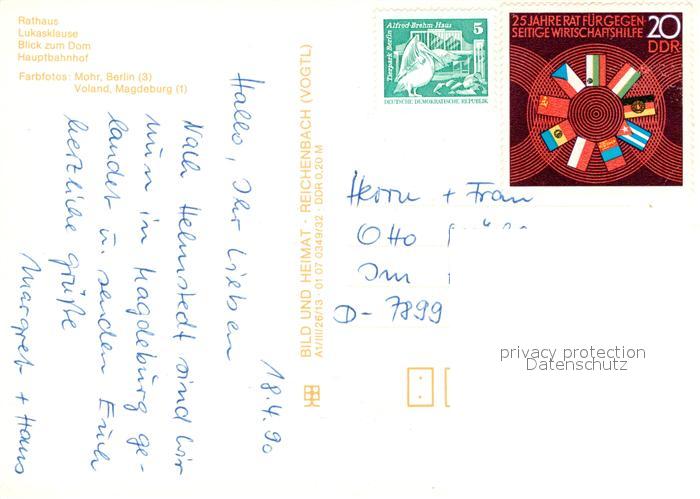 Rathaus
Lukasklause
Blick zum Dom
Hauptbahnhof
Farbfotos: Mohr, Berlin (3)
Voland, Magdeburg (1)
18.4.90
Hallo, Ihr Lieben
Nach Helmstedt sind wir
nun in Magdeburg ge-
landet u. senden Euch
herzliche Grüße
Margret + Hans
BILD UND HEIMAT · REICHENBACH (VOGTL)
A1/III/26/13 · 01 07 0349/32 · DDR 0,20 M
Tierpark Berlin
Alfred-Brehm-Haus
5
DEUTSCHE DEMOKRATISCHE REPUBLIK
25 JAHRE RAT FÜR GEGEN-
SEITIGE WIRTSCHAFTSHILFE
20
DDR
Herrn + Frau
Otto
Im
D- 7899
privacy protection
Datenschutz